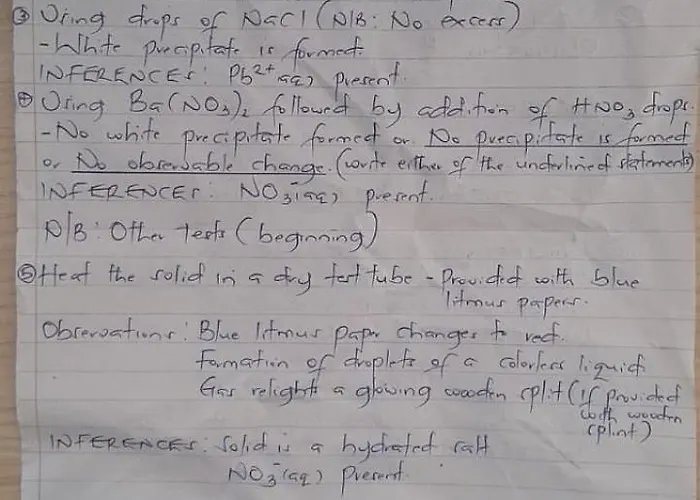 ③ Using drops of NaCl (N/B: No excess)
- White precipitate is formed.
INFERENCES: Pb²⁺(aq) present.
④ Using Ba(NO₃)₂ followed by addition of HNO₃ drops
- No white precipitate formed or No precipitate is formed
or No observable change. (write either of the underlined statements)
INFERENCES: NO₃⁻(aq) present.
N/B: Other tests (beginning)
⑤ Heat the solid in a dry test tube - Provided with blue
litmus papers.
Observations: Blue litmus paper changes to red.
Formation of droplets of a colorless liquid
Gas relights a glowing wooden split (if provided
with wooden
splint)
INFERENCES: Solid is a hydrated salt
NO₃⁻(aq) present.